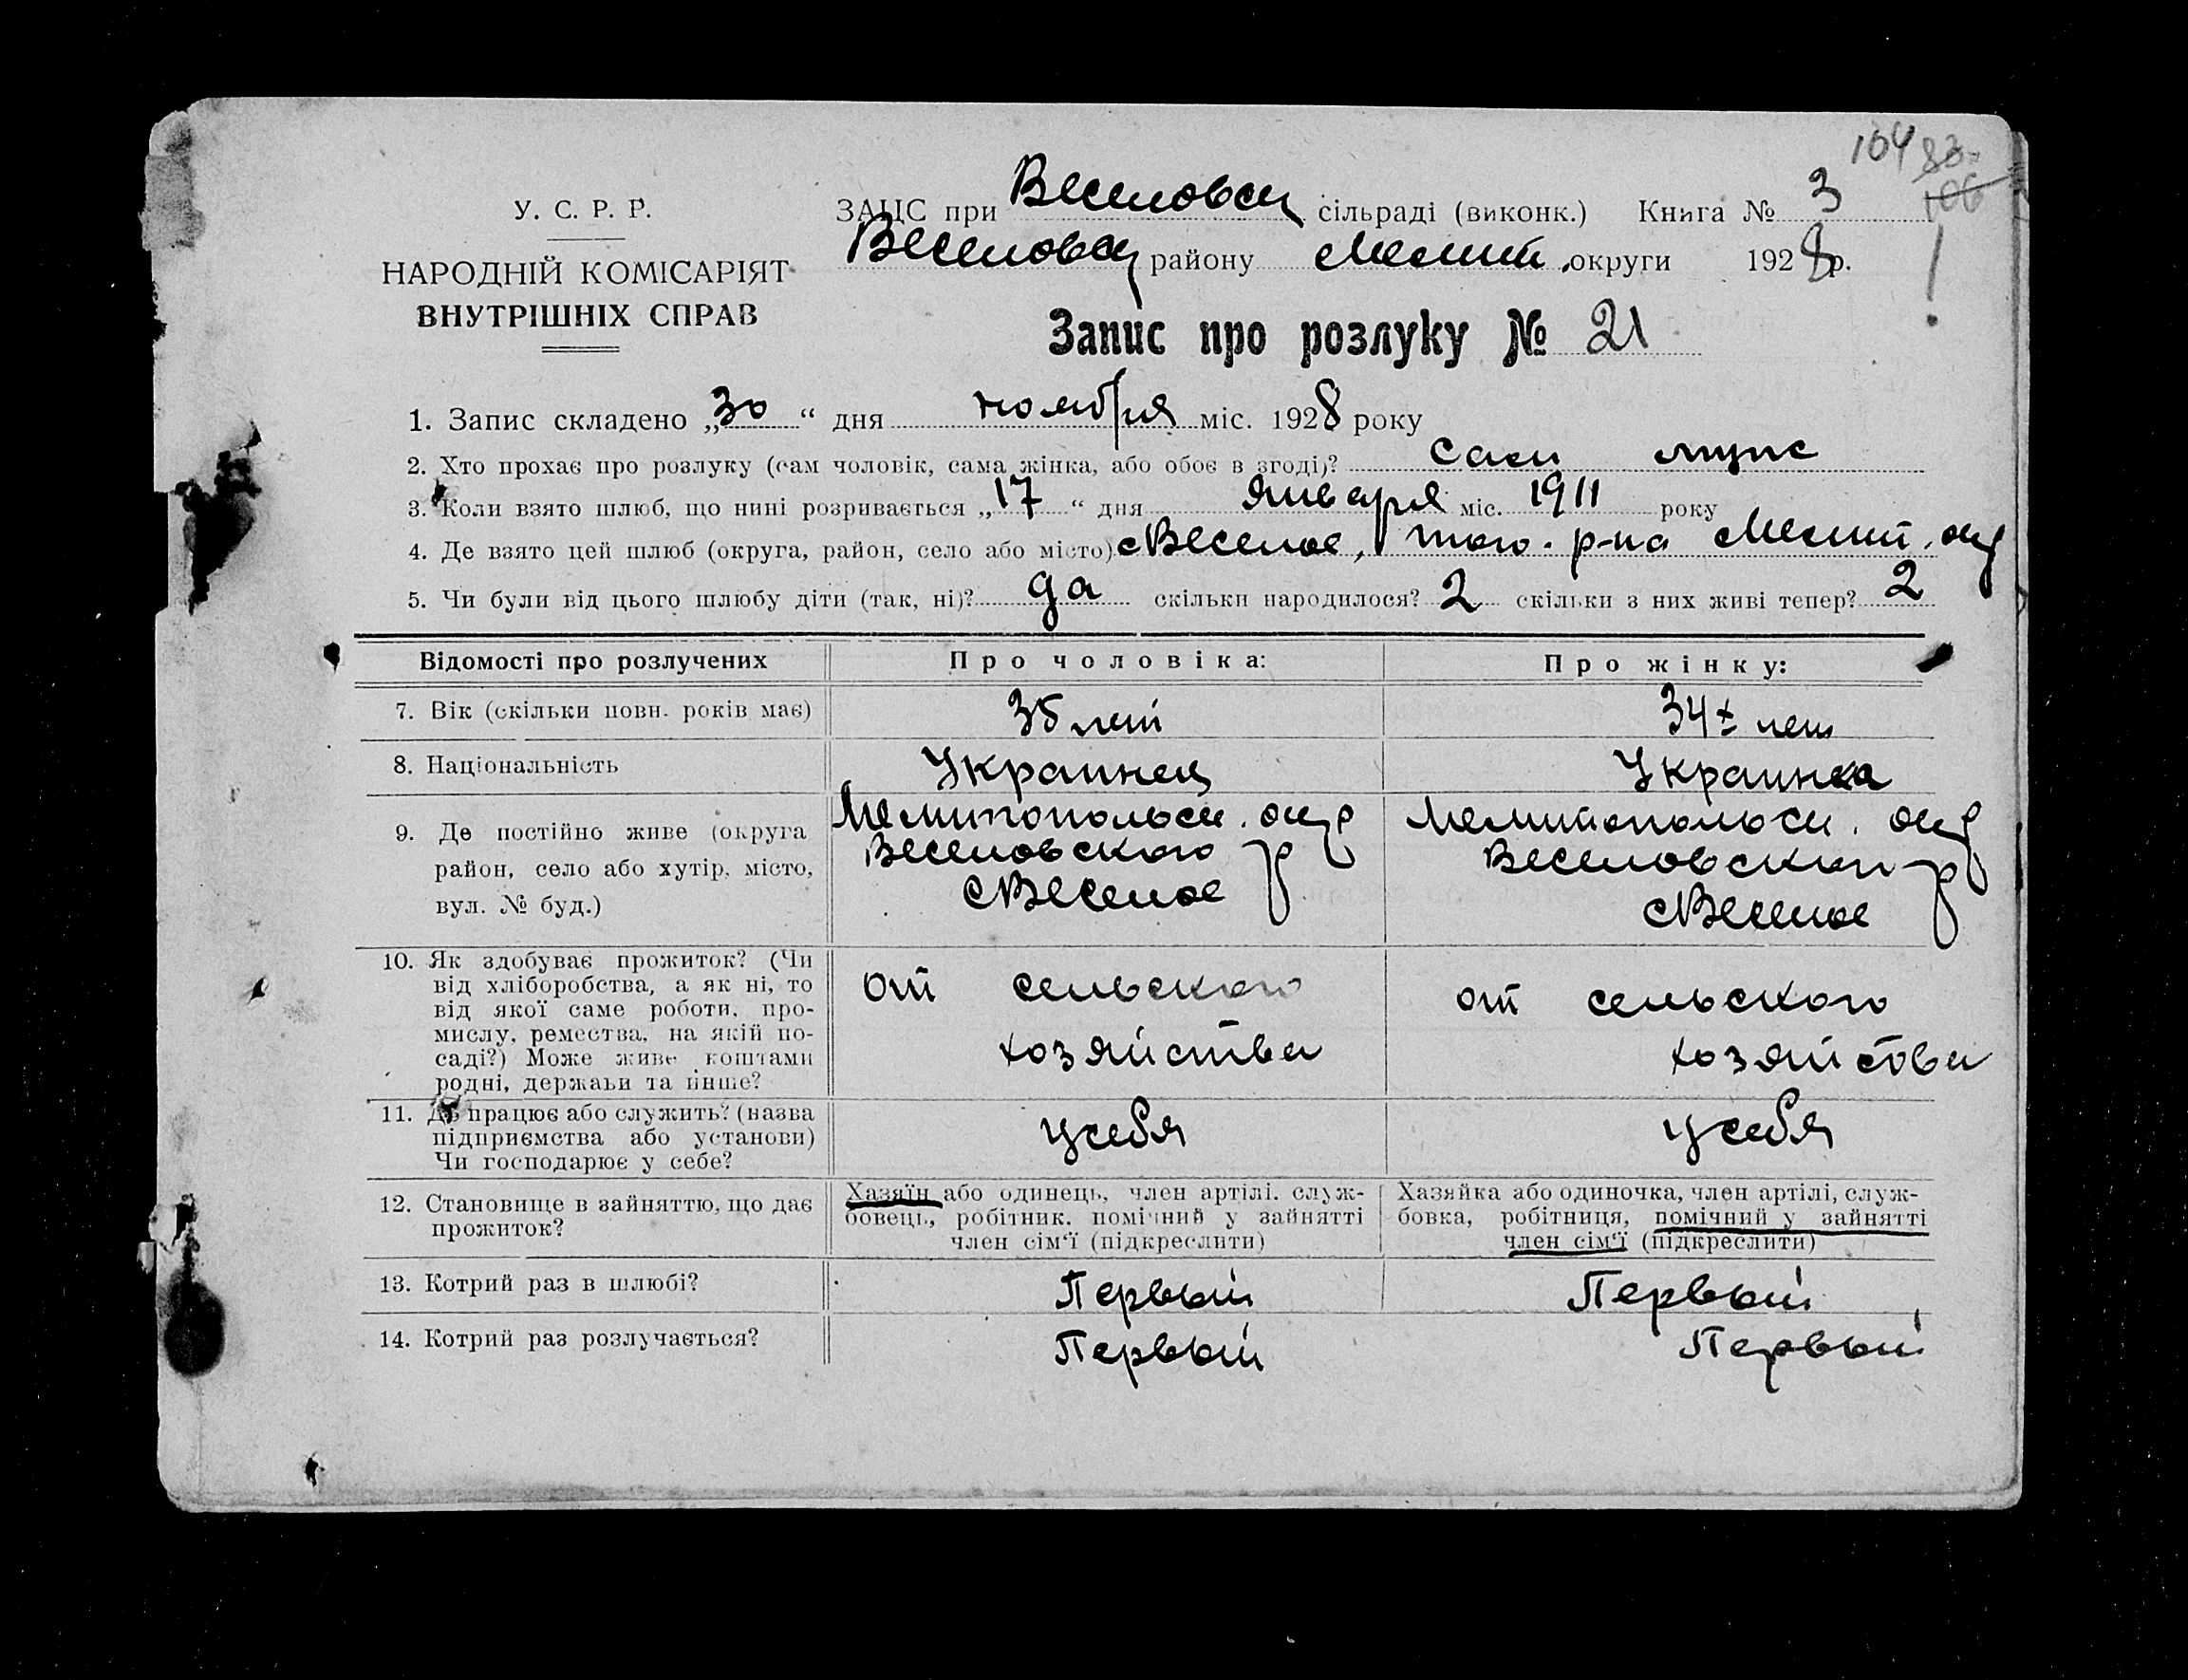 104 83
106
У. С. Р. Р.
НАРОДНІЙ КОМІСАРІЯТ
ВНУТРІШНІХ СПРАВ
ЗАЦС при Веселовск сільраді (виконк.) Книга № 3
Веселовск району Мелит. округи 1928 р.
Запис про розлуку № 21
1. Запис складено „30“ дня ноября міс. 1928 року
2. Хто прохає про розлуку (сам чоловік, сама жінка, або обоє в згоді)? сам
3. Коли взято шлюб, що нині розривається „17“ дня января міс. 1911 року
4. Де взято цей шлюб (округа, район, село або місто) с Веселое, того. р-на Мелит. окр
5. Чи були від цього шлюбу діти (так, ні)? да скільки народилося? 2 скільки з них живі тепер? 2
Відомості про розлучених Про чоловіка: Про жінку:
7. Вік (скільки повн. років має) 35 лет 34 лет
8. Національність Украинец Украинка
9. Де постійно живе (округа район, село або хутір, місто, вул. № буд.)
Мелитопольск. окр
Веселовского р
с Веселое
Мелитопольск. окр
Веселовского р
с Веселое
10. Як здобуває прожиток? (Чи
від хліборобства, а як ні, то
від якої саме роботи, про-
мислу, ремества, на якій по-
саді?) Може живе коштами
родні, держави та інше?
от сельского
хозяйства
от сельского
хозяйства
11. Де працює або служить? (назва
підприємства або установи)
Чи господарює у себе?
у себя
у себя
12. Становище в зайняттю, що дає
прожиток?
Хазяїн або одинець, член артілі, служ-
бовець, робітник, помічний у зайнятті
член сім'ї (підкреслити)
Хазяйка або одиночка, член артілі, служ-
бовка, робітниця, помічний у зайнятті
член сім'ї (підкреслити)
13. Котрий раз в шлюбі? Первый Первый
14. Котрий раз розлучається? Первый Первый